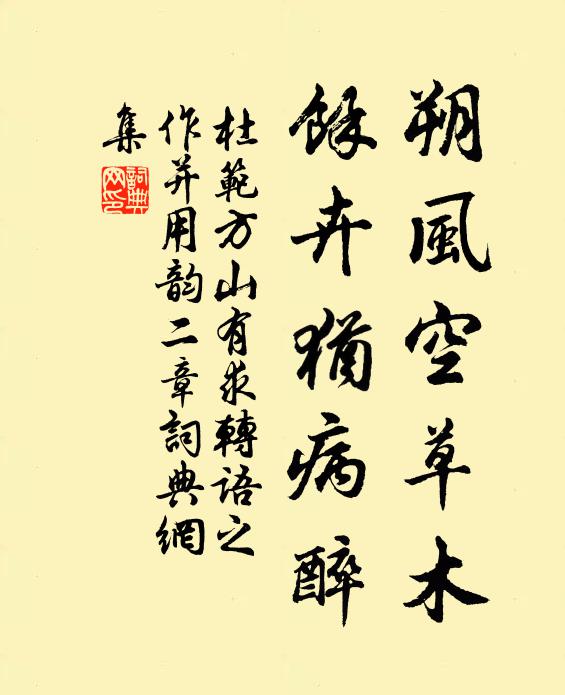 朔風空草木
餘卉猶病醉
杜範方山有求轉語之
作并用韵二章詞典網
集
詞典網印